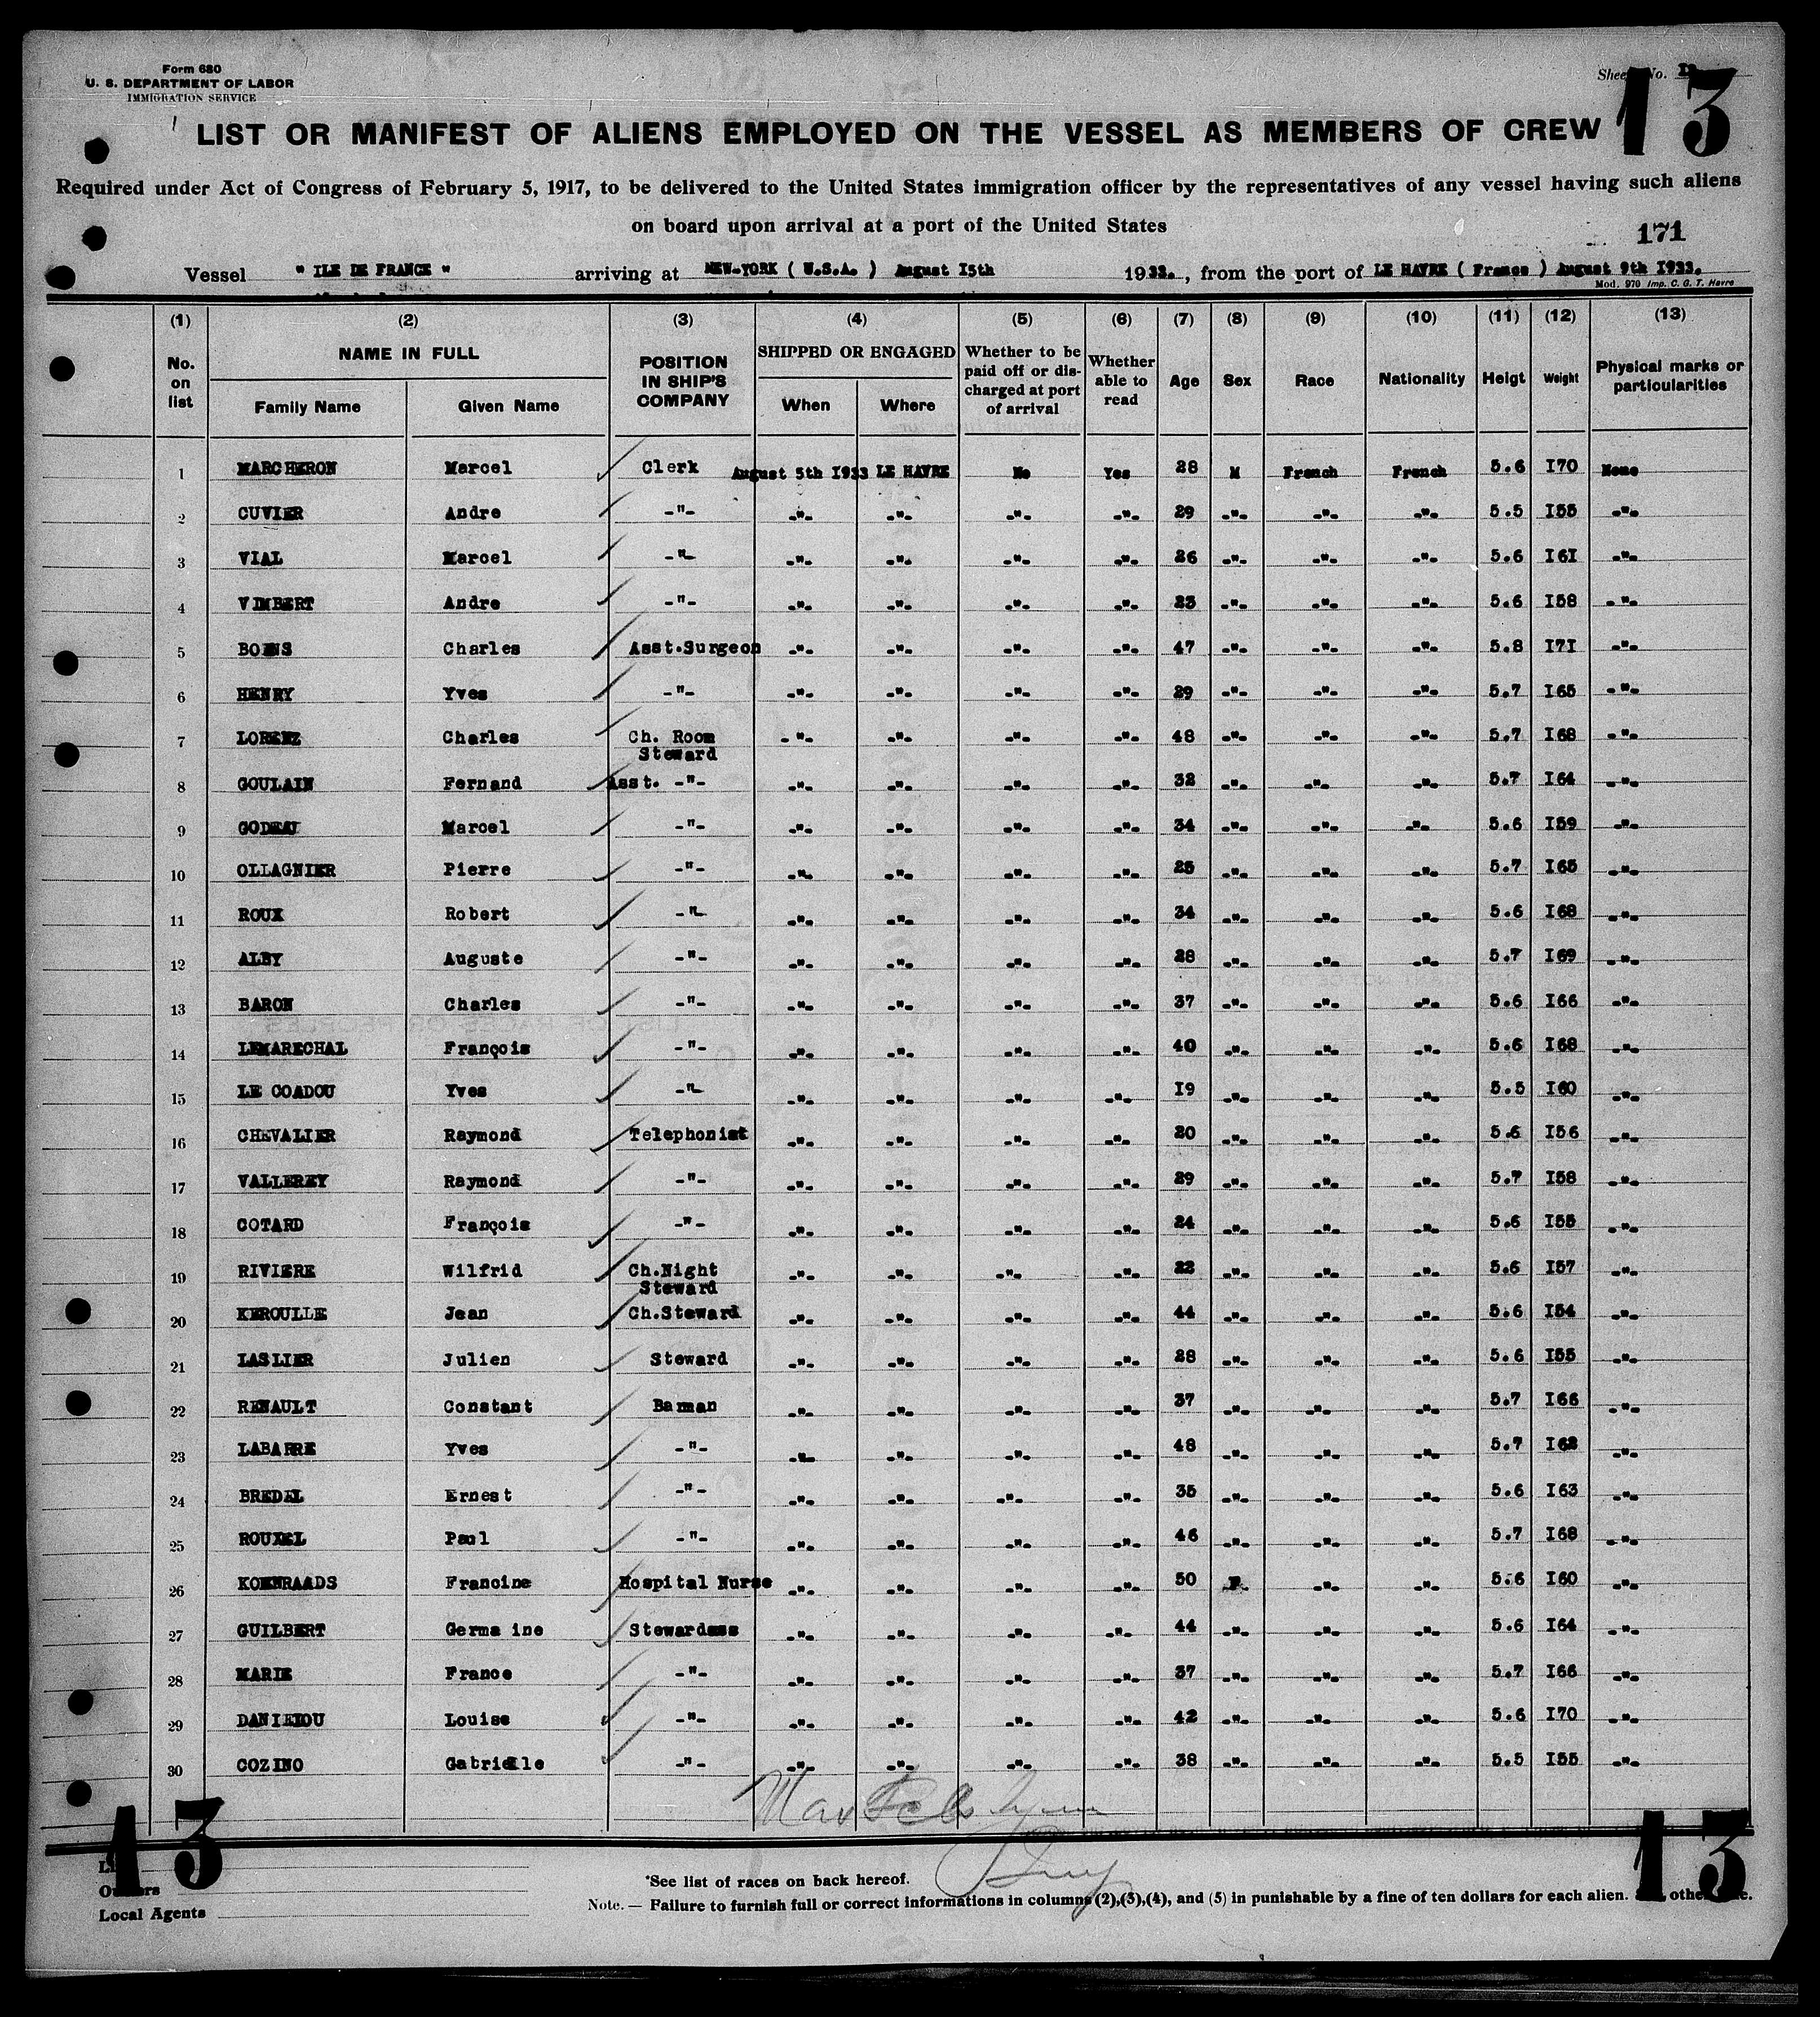 Form 680
U. S. DEPARTMENT OF LABOR
IMMIGRATION SERVICE
Sheet No.
13
LIST OR MANIFEST OF ALIENS EMPLOYED ON THE VESSEL AS MEMBERS OF CREW
Required under Act of Congress of February 5, 1917, to be delivered to the United States immigration officer by the representatives of any vessel having such aliens
on board upon arrival at a port of the United States
171
Vessel " ILE DE FRANCE " arriving at NEW-YORK ( U.S.A. ) August I5th 1933., from the port of LE HAVRE ( France ) August 9th I933.
Mod. 970 Imp. C. G. T. Havre
(1) (2) (3) (4) (5) (6) (7) (8) (9) (10) (11) (12) (13)
No. on list NAME IN FULL Family Name Given Name POSITION IN SHIP'S COMPANY SHIPPED OR ENGAGED When Where Whether to be paid off or discharged at port of arrival Whether able to read Age Sex Race Nationality Heigt Weight Physical marks or particularities
1 MARCHERON Marcel Clerk August 5th I933 LE HAVRE No Yes 28 M French French 5.6 I70 None
2 CUVIER Andre -"- -"- -"- -"- -"- 29 -"- -"- -"- 5.5 I55 -"-
3 VIAL Marcel -"- -"- -"- -"- -"- 26 -"- -"- -"- 5.6 I6I -"-
4 VIMBERT Andre -"- -"- -"- -"- -"- 23 -"- -"- -"- 5.6 I58 -"-
5 BOENS Charles Asst.Surgeon -"- -"- -"- -"- 47 -"- -"- -"- 5.8 I7I -"-
6 HENRY Yves -"- -"- -"- -"- -"- 29 -"- -"- -"- 5.7 I65 -"-
7 LORENZ Charles Ch. Room Steward -"- -"- -"- -"- 48 -"- -"- -"- 5.7 I68 -"-
8 GOULAIN Fernand Asst. -"- -"- -"- -"- -"- 32 -"- -"- -"- 5.7 I64 -"-
9 GODEAU Marcel -"- -"- -"- -"- -"- 34 -"- -"- -"- 5.6 I59 -"-
10 OLLAGNIER Pierre -"- -"- -"- -"- -"- 25 -"- -"- -"- 5.7 I65 -"-
11 ROUX Robert -"- -"- -"- -"- -"- 34 -"- -"- -"- 5.6 I68 -"-
12 ALBY Auguste -"- -"- -"- -"- -"- 28 -"- -"- -"- 5.7 I69 -"-
13 BARON Charles -"- -"- -"- -"- -"- 37 -"- -"- -"- 5.6 I66 -"-
14 LEMARECHAL François -"- -"- -"- -"- -"- 40 -"- -"- -"- 5.6 I68 -"-
15 LE COADOU Yves -"- -"- -"- -"- -"- I9 -"- -"- -"- 5.5 I60 -"-
16 CHEVALIER Raymond Telephonist -"- -"- -"- -"- 20 -"- -"- -"- 5.6 I56 -"-
17 VALLEREY Raymond -"- -"- -"- -"- -"- 29 -"- -"- -"- 5.7 I58 -"-
18 COTARD François -"- -"- -"- -"- -"- 24 -"- -"- -"- 5.6 I55 -"-
19 RIVIERE Wilfrid Ch.Night Steward -"- -"- -"- -"- 22 -"- -"- -"- 5.6 I57 -"-
20 KEROULLE Jean Ch.Steward -"- -"- -"- -"- 44 -"- -"- -"- 5.6 I54 -"-
21 LASLIER Julien Steward -"- -"- -"- -"- 28 -"- -"- -"- 5.6 I55 -"-
22 RENAULT Constant Barman -"- -"- -"- -"- 37 -"- -"- -"- 5.7 I66 -"-
23 LABARRE Yves -"- -"- -"- -"- -"- 48 -"- -"- -"- 5.7 I62 -"-
24 BREDEL Ernest -"- -"- -"- -"- -"- 35 -"- -"- -"- 5.6 I63 -"-
25 ROUXEL Paul -"- -"- -"- -"- -"- 46 -"- -"- -"- 5.7 I68 -"-
26 KOENRAADS Francine Hospital Nurse -"- -"- -"- -"- 50 F -"- -"- 5.6 I60 -"-
27 GUILBERT Germa ine Stewardess -"- -"- -"- -"- 44 -"- -"- -"- 5.6 I64 -"-
28 MARIE France -"- -"- -"- -"- -"- 37 -"- -"- -"- 5.7 I66 -"-
29 DANIELOU Louise -"- -"- -"- -"- -"- 42 -"- -"- -"- 5.6 I70 -"-
30 COZINO Gabrielle -"- -"- -"- -"- -"- 38 -"- -"- -"- 5.5 I55 -"-
13
13
Owners
Local Agents
*See list of races on back hereof.
Note. — Failure to furnish full or correct informations in columns (2),(3),(4), and (5) in punishable by a fine of ten dollars for each alien.